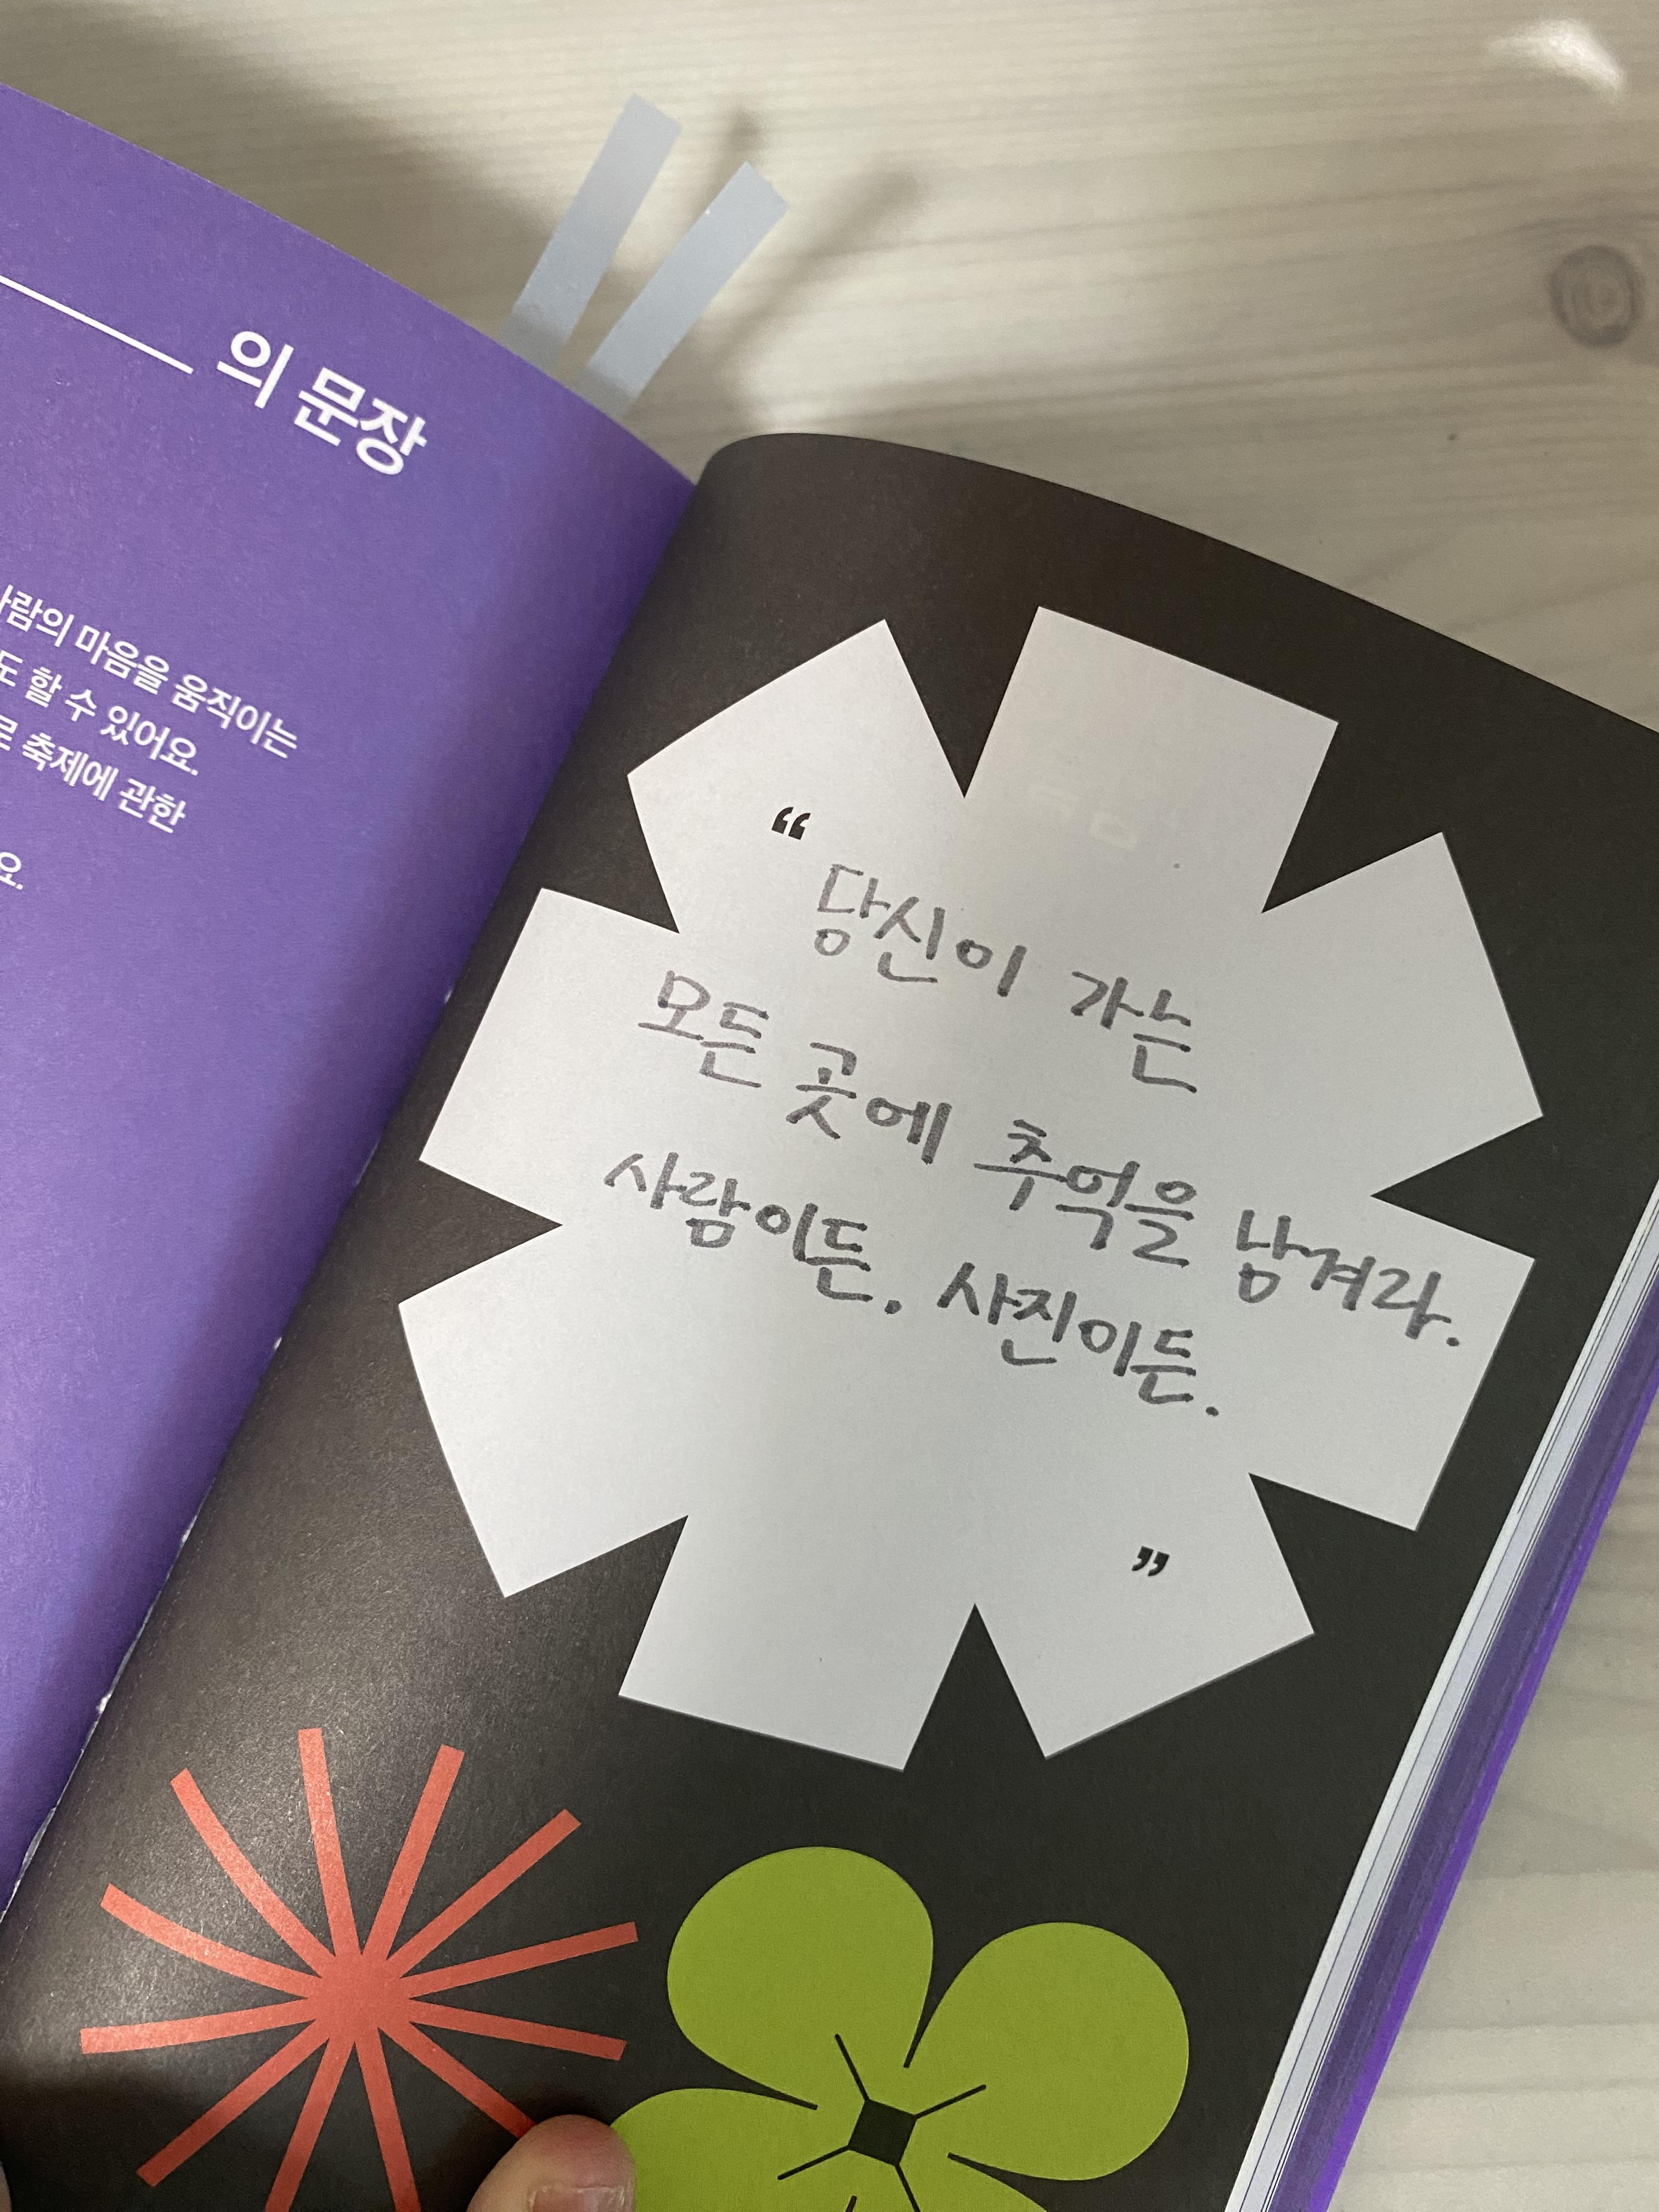 의 문장
사람의 마음을 움직이는
도 할 수 있어요.
로 축제에 관한
요.
“
당신이 가는
모든 곳에 추억을 남겨라.
사람이든, 사진이든.
”